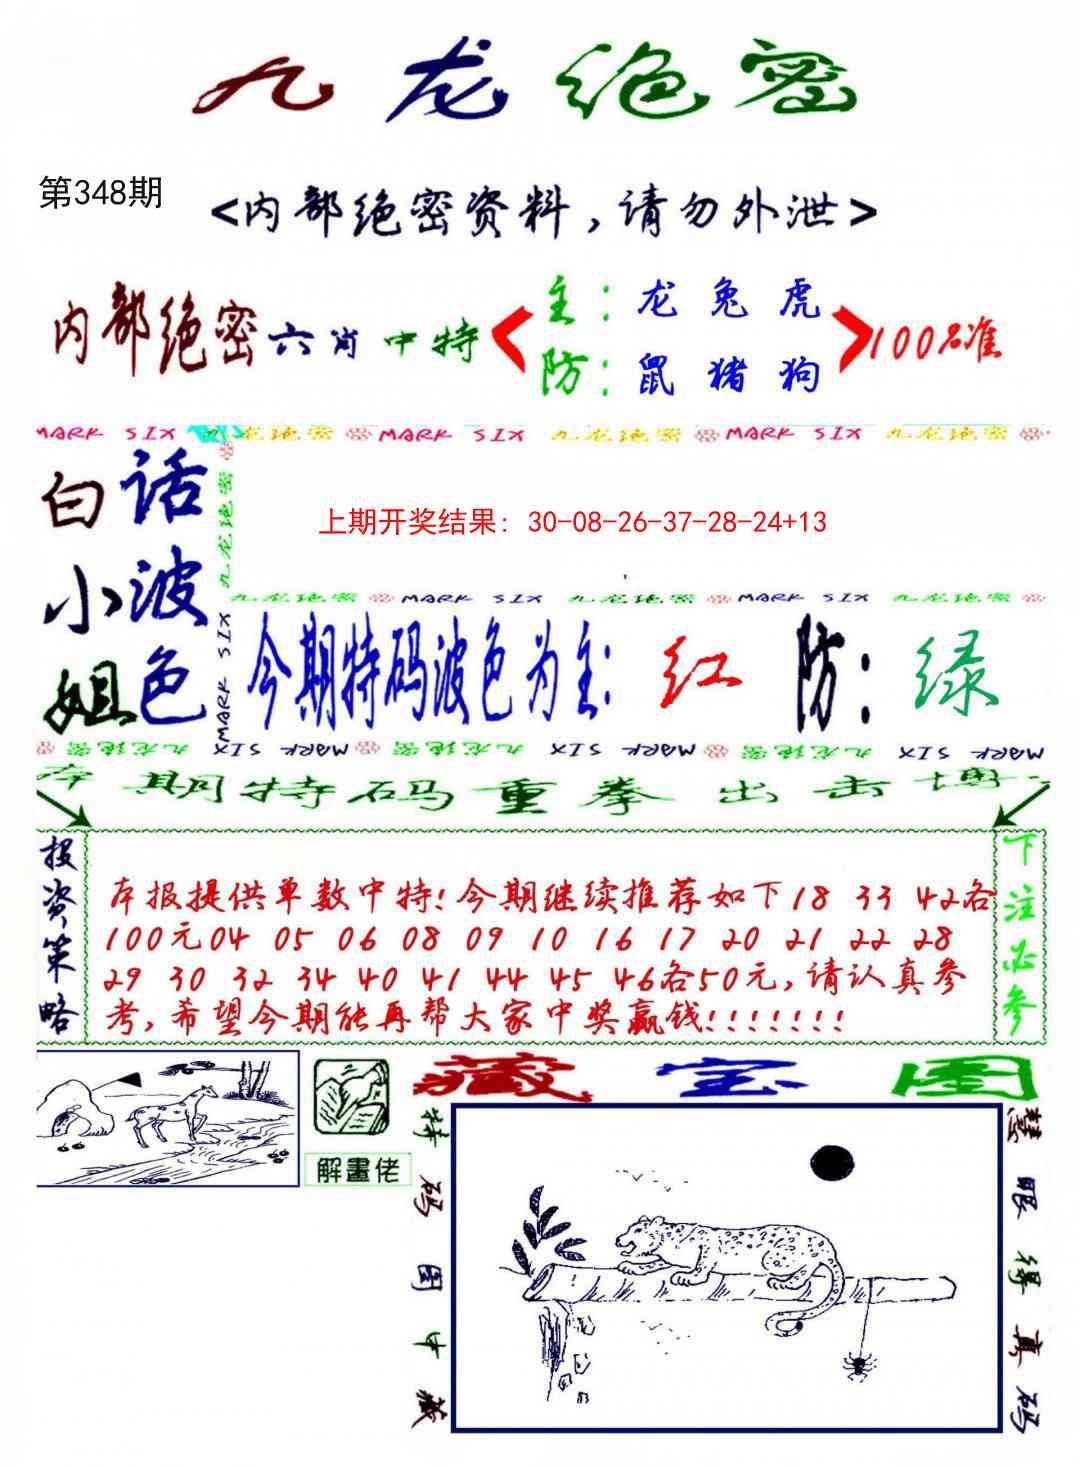 九龙绝密
第348期
<内部绝密资料，请勿外泄>
内部绝密六肖中特
主：龙 兔 虎
防：鼠 猪 狗
100%准
MARK SIX 九龙绝密 MARK SIX 九龙绝密 MARK SIX 九龙绝密
白小姐
话波色
九龙绝密
MARK SIX
上期开奖结果：30-08-26-37-28-24+13
九龙绝密 MARK SIX 九龙绝密 MARK SIX 九龙绝密
今期特码波色为主：红 防：绿
MARK SIX
九龙绝密 MARK SIX 九龙绝密 MARK SIX 九龙绝密 MARK SIX
本期特码重拳出击博
投资策略
本报提供单数中特！今期继续推荐如下18 33 42各
100元04 05 06 08 09 10 16 17 20 21 22 28
29 30 32 34 40 41 44 45 46各50元，请认真参
考，希望今期能再帮大家中奖赢钱！！！！！！！
下注必参
解畫佬
藏宝图
特码图中藏
慧眼得真码